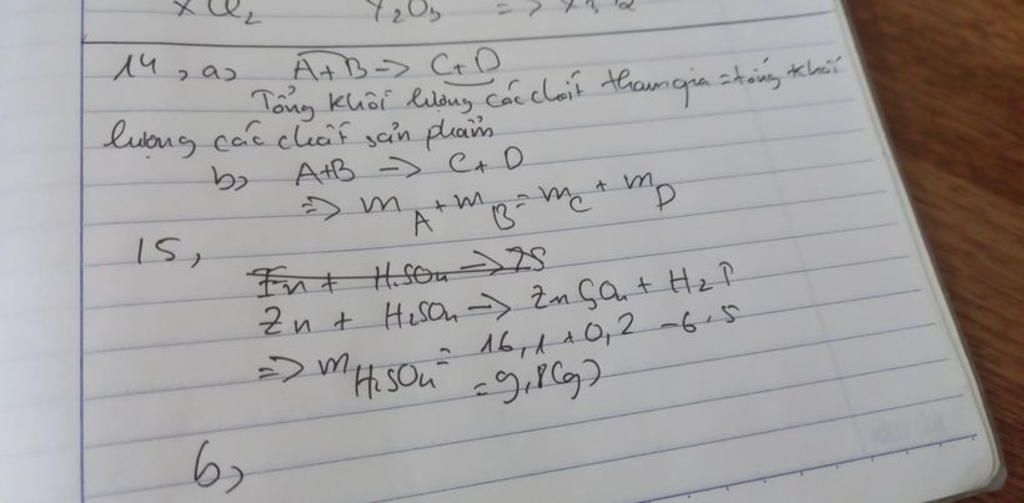 XCl₂ Y₂O₃ =>
14, a, A+B -> C+D
Tổng khối lượng các chất tham gia = tổng khối
lượng các chất sản phẩm
b, A+B -> C+D
=> m_A + m_B = m_C + m_D
15,
Zn + H₂SO₄ -> ZS
Zn + H₂SO₄ -> ZnSO₄ + H₂↑
=> m_H₂SO₄ = 16,1+0,2-6.5
=9,8(g)
b,